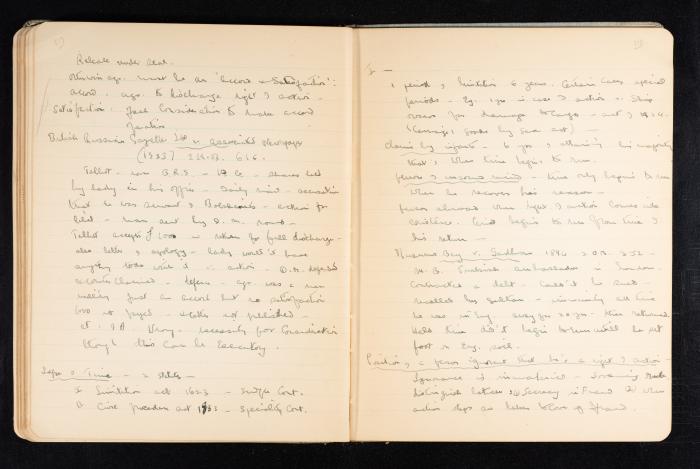 Release under seal.
otherwise ago. must be an "accord & Satisfaction":
accord - ago. to discharge right of action -
Satisfaction - the Consideration to make accord
British Russian Gazette Ltd v. Associated Newspaper
(1933) 2 K.B. 616.
Talbot - was - shares held
by lady in his office - Daily Mail -
that he was servant of Bolsheviks - action for
libel - man sent by D.M. round -
Talbot accepts £1000 - return for full discharge -
also letter of apology - lady won't have
anything to do with it - action - D.M. refused
Defence - ago. was a
just an accord but no satisfaction
1000 not paid - not published -
Ct. of A. necessity for Consideration
though this can be Executory.
Lapse of Time - 2 statutes -
I Limitation Act 1623 - Simple Cont.
II Civil Procedure Act 1833 - Speciality Cont.
I -
1 period of limitation 6 years. Certain Cases special
periods - eg. 1 yr in case of action v. Ship
owner for damage to cargo - act of 1924.
(Carriage of Goods by Sea Act) -
Claim by infants - 6 yrs of attaining his majority
that's when time begins to run.
Person of unsound mind - time only begins to run
when he recovers his reason -
person abroad when right of action comes into
existence. Time begins to run from time of
his return -
Musurus Bey v. Gadban 1894 2 Q.B. 352 -
M.B. Turkish ambassador in London.
Contracted a debt - couldn't be sued -
recalled by Sultan - immunity all time
he was in Eng. away for 20 yrs. then returned.
Held time didn't begin to run until he set
foot on Eng. soil.
Position of a person ignorant that he's a right of action -
Ignorance is immaterial -
distinguish between (1) Secrecy in Fraud (2) when
action lies on fraud.